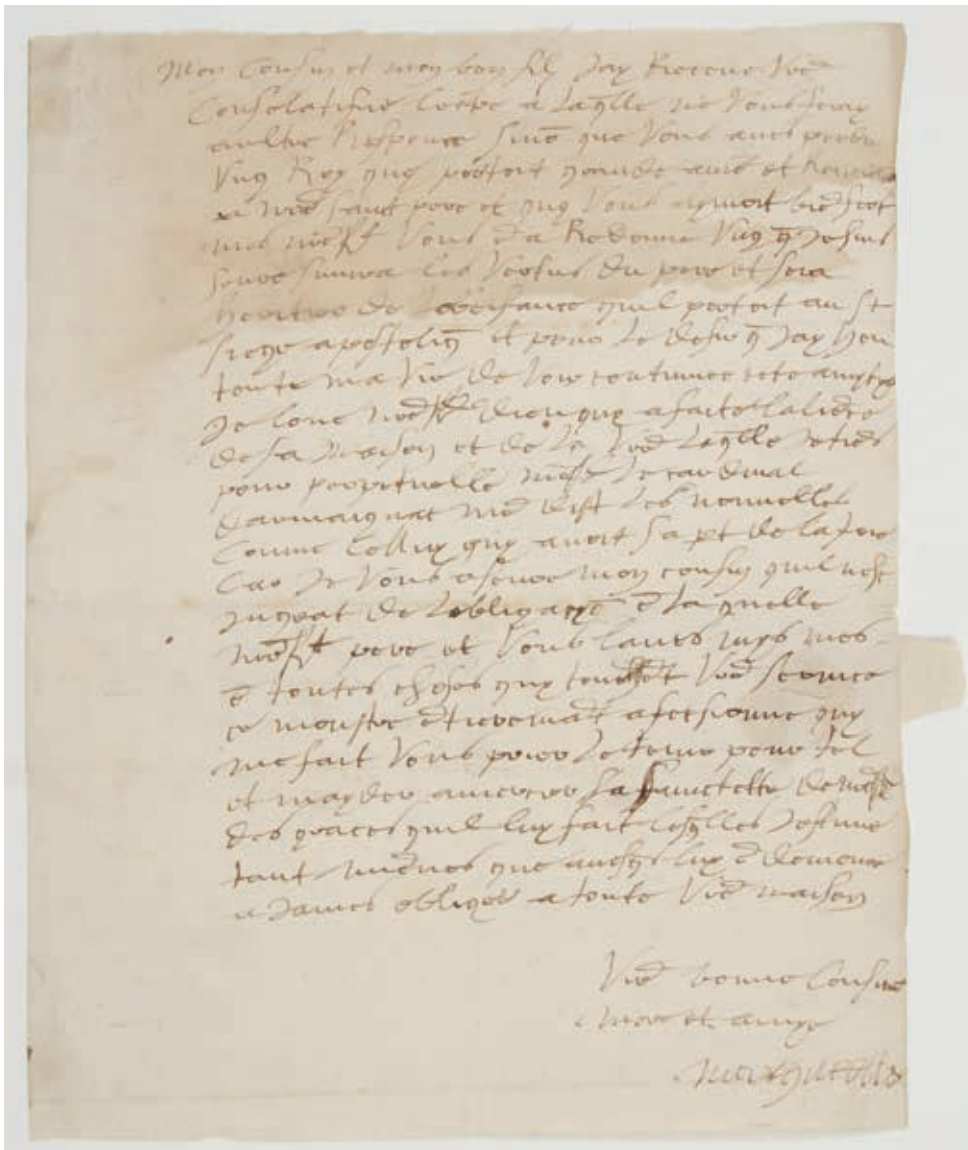 Mon Cousin et mon bon filz Jay Receue vre
Consolatifve lectre a laqlle ne vous feray
aultre Response sino que vous aves perdu
Ung Roy quy portoit grande amour et
a nre saint pere et quy vous aymoit bie fort
mes nre sr vous a Redonne Ung q
suivra les vertus du pere et sera
heritier de lobeisance quil portoit au st
siege apostoliq et pour le desir q Jay heu
toute ma vie de voir continuer cete amytye
Je loue nre sr Dieu quy a faite laliance
de sa maison et de la vre laqlle Je tiens
pour perpetuelle monsr le cardinal
darmaignac men dist les nouvelles
Comme Celluy quy avoit sa pt de la Joye
Car Je vous aseure mon cousin quil nest
ingrat de lobligatio e laquelle
nre st pere et vous laves mys mes
e toutes choses quy touchet vre service
ce monstre afectionne quy
me fait vous prier le tenir pour tel
et mayder a mercier sa sainctette
des graces quil luy fait lesqlles Jestime
tant miennes que avesqs luy e demeure
a James obligee a toute vre maison
Vre bonne Cousine
mere et amye
Marguerite